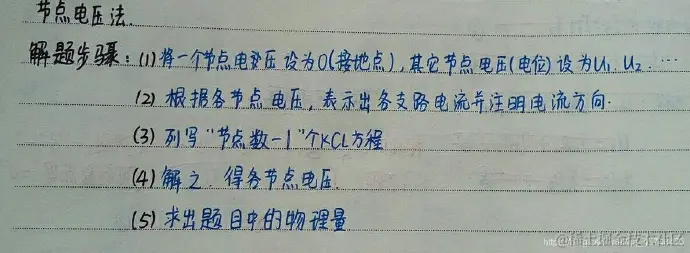 节点电压法.
解题步骤:(1)将一个节点电压设为0(接地点),其它节点电压(电位)设为U₁.U₂.…
(2)根据各节点电压,表示出各支路电流并注明电流方向.
(3)列写“节点数-1”个KCL方程
(4)解之.得各节点电压.
(5)求出题目中的物理量